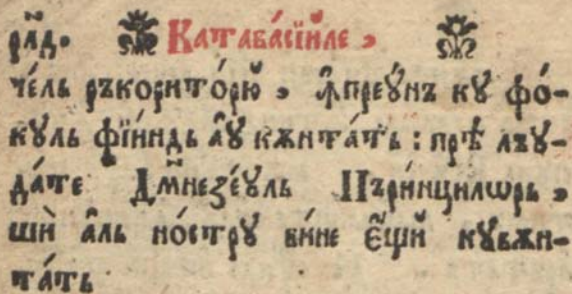 ра́д. Катава́сїйле ,
че́ль ръкорито́рю , ꙟ҆преꙋ́нъ кꙋ фо́-
кꙋль фїи́ндь а҆́ꙋ кѫнта́ть : прѣ́ лъꙋ-
да́те Дм҃незе́ꙋль Пъри́нцилѡрь ,
шѝ а҆́ль но́стрꙋ би́не є҆́щй кꙋвѫн-
та́ть